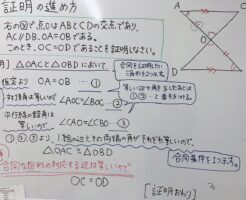 証明の進め方
右の図で、点OはABとCDの交点であり、
AC//DB、OA=OBである。
このとき、OC=ODであることを証明しなさい。
△OACと△OBDにおいて
合同を証明したい
三角形を2つ書く。
仮定より OA=OB …①
等しい辺や角を示したあとは
①②…と番号をつける。
対頂角は等しいので
平行線の錯角は
等しいので
①②③より、1組の辺とその両端の角がそれぞれ等しいので、
△OAC≡△OBD
合同条件を1つ書く。
合同な図形の対応する辺は等しいので
OC=OD
[証明おわり]
A
C
O
D
B